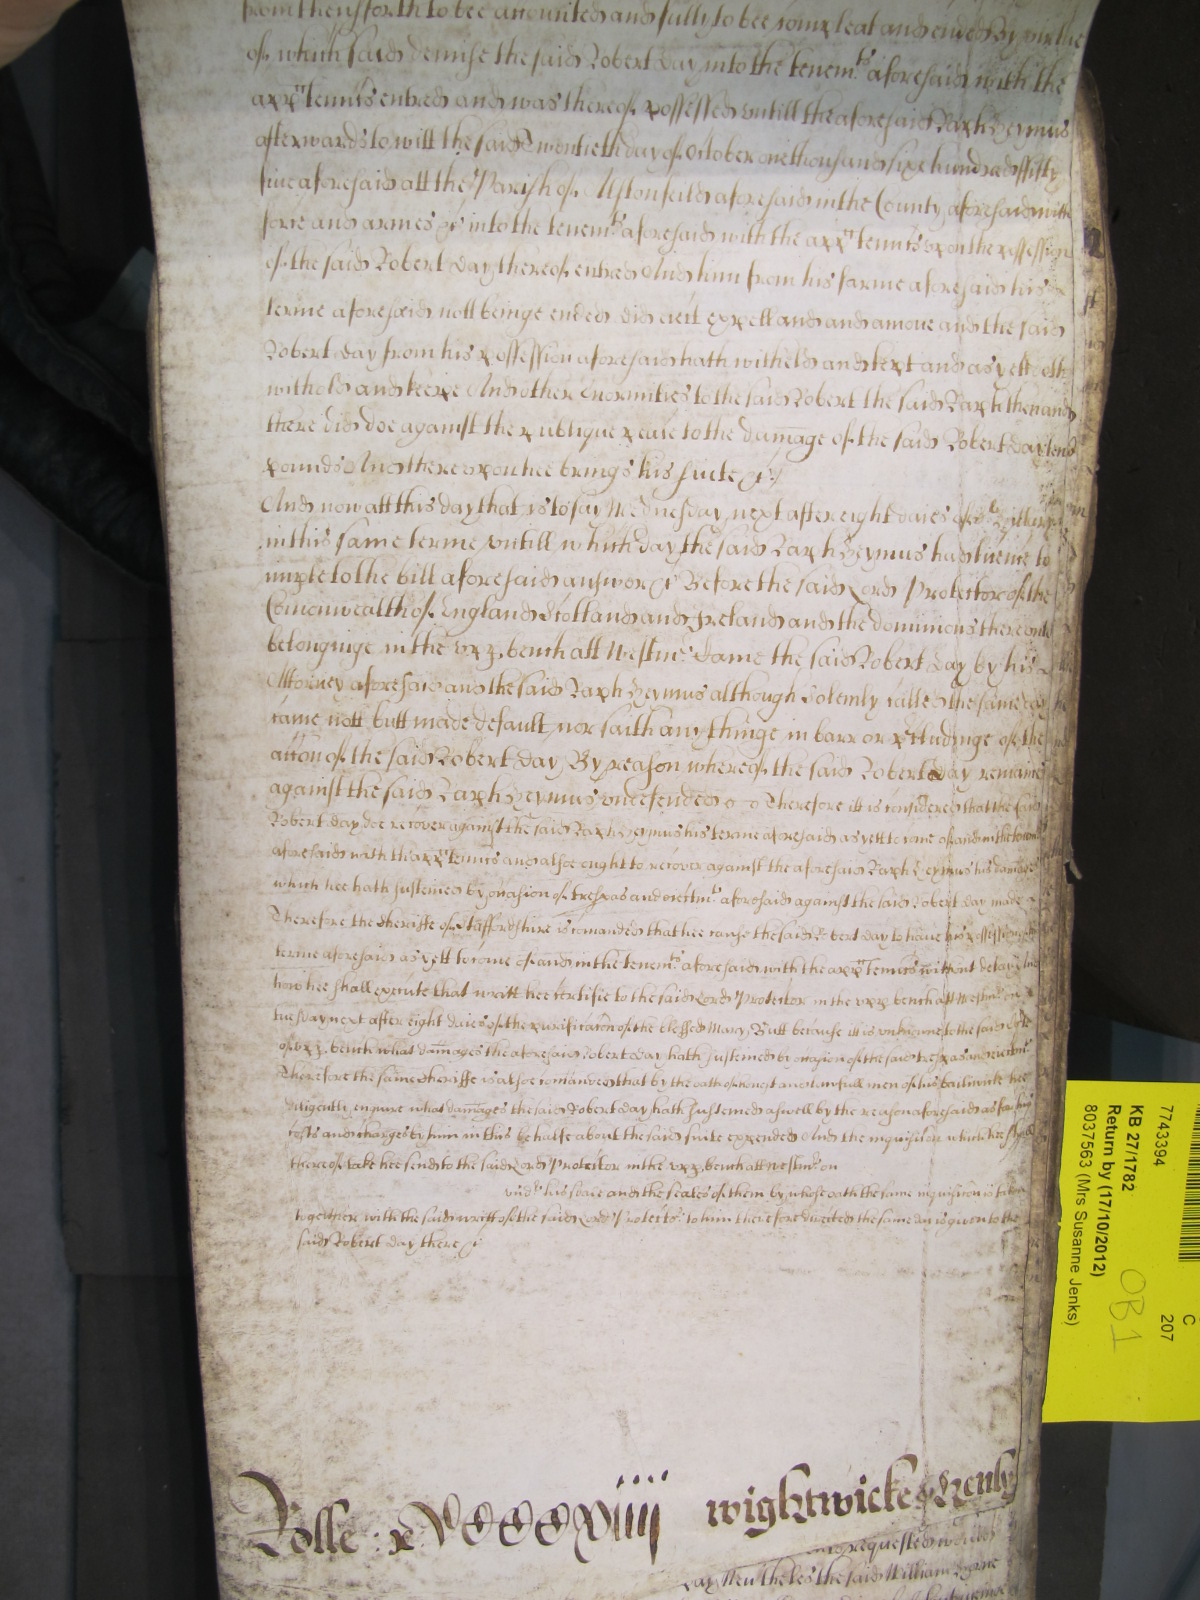 from thensforth to bee accounted and fully to bee compleat and ended By virtue
of which said demise the said Robert Day into the tenemts aforesaid with the
appurtennts entred and was thereof possessed untill the aforesaid Raph Heymus
afterwards to witt the said Twentieth day of October one thousand six hundred fifty
five aforesaid att the Parish of Alstonfeild aforesaid in the County aforesaid with
force and armes &c into the tenemts aforesaid with the appurtennts upon the possession
of the said Robert Day thereof entred And him from his farme aforesaid his
terme aforesaid nott beinge ended did eiect expell and amove and the said
Robert Day from his possession aforesaid hath witheld and kept and as yett doth
withold and keepe And other Enormities to the said Robert the said Raph then and
there did doe against the publique peace to the damage of the said Robert Day tenn
pounds And thereupon hee brings his suite &c
And now att this day that is to say Wednesday next after eight daies of St Hillary
in this same terme untill which day the said Raph Heymus had licence to
imple to the bill aforesaid answer &c Before the said Lord Protector of the
Comonwealth of England Scotland and Ireland and the dominions thereunto
belonginge in the upp. bench att Westmr Came the said Robert Day by his
Attorney aforesaid and the said Raph Heymus although solemly called the same day
came nott butt made default nor saith any thinge in barr or p'cludinge of the
accon of the said Robert Day By reason whereof the said Robert Day remaines
against the said Raph Heymus undefended Therefore itt is considered that the said
Robert Day doe recover against the said Raph Heymus his terme aforesaid as yett to come of and in the tenemts
aforesaid with the appurtennts and alsoe ought to recover against the aforesaid Raph Heymus his damages
which hee hath susteined by occasion of trespas and eiectmt aforesaid against the said Robert Day made
Therefore the Sheriffe of Staffordshire is comanded that hee cause the said Robert Day to have his possession of his
terme aforesaid as yett to come of and in the tenemts aforesaid with the appurtennts without delay and
how hee shall execute that writt hee certifie to the said Lord Protector in the upp. bench att Westmr on
tuesday next after eight daies of the purificacon of the blessed Mary, Butt because itt is unknowne to the said Court
of upp. bench what damages the aforesaid Robert Day hath susteined by occasion of the said trespas and eiectmt
Therefore the same Sheriffe is alsoe comanded that by the oath of honest and lawfull men of his bailiwicke hee
diligently enquire what damages the said Robert Day hath susteined aswell by the reason aforesaid as for his
costs and charges by him in this behalfe about the said suite expended And the inquisicon which hee shall
thereof take hee send to the said Lord Protector in the upp. bench att Westmr on
undr his seale and the seales of them by whose oath the same inquisicon is taken
together with the said writt of the said Lord Protector to him therefore directed the same day is given to the
said Robert Day there &c
Rolle : wightwicke & Henly
requested
Nevertheles the said William
7743394
KB 27/1782
Return by (17/10/2012)
8037563 (Mrs Susanne Jenks)
C
207
OB1